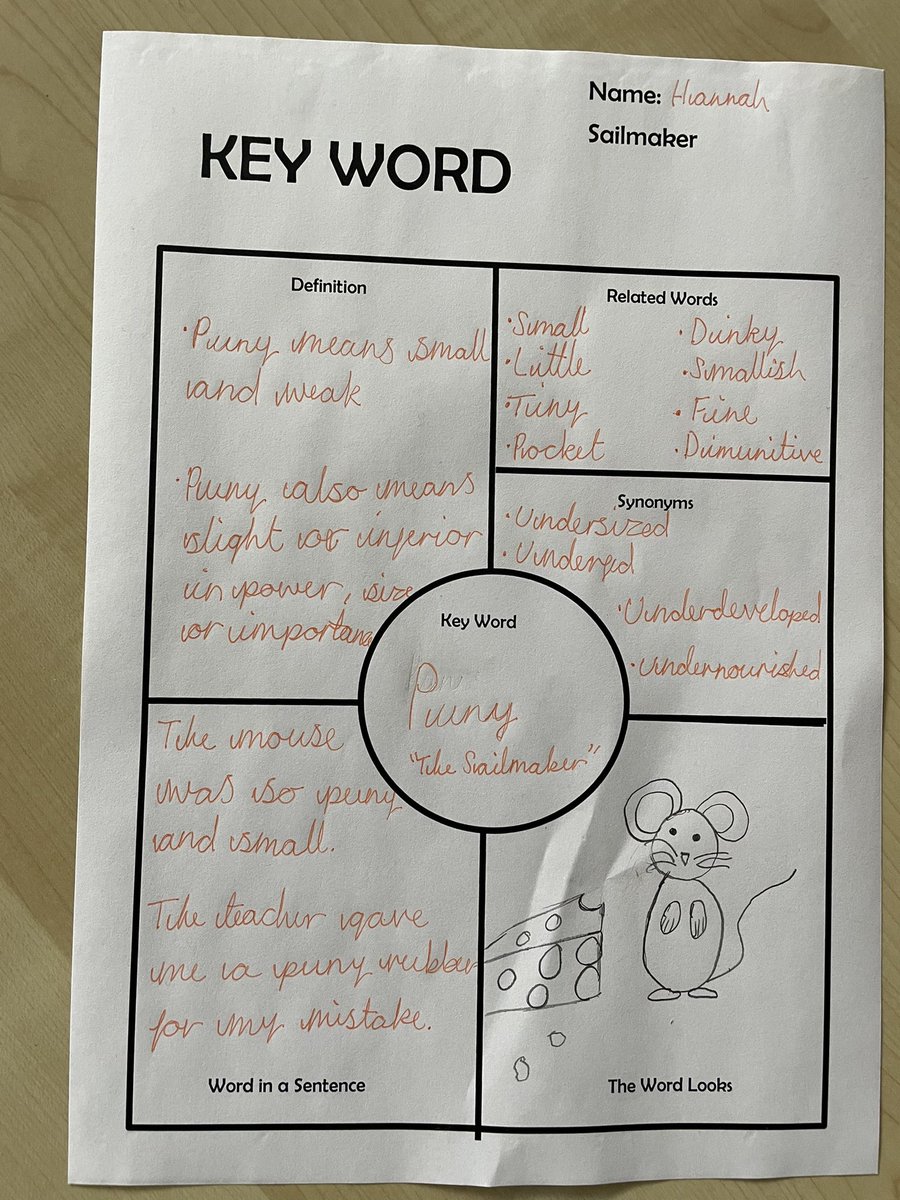 Name: Hannah
Sailmaker
KEY WORD
Definition
· Puny means small
and weak
· Puny also means
slight or inferior
in power, size
or importance
Related Words
· Small
· Little
· Tiny
· Pocket
· Dinky
· Smallish
· Fine
· Diminutive
Synonyms
· Undersized
· Underfed
· Underdeveloped
· Undernourished
Key Word
Puny
"The Sailmaker"
The mouse
was so puny
and small.
The teacher gave
me a puny rubber
for my mistake.
Word in a Sentence
The Word Looks